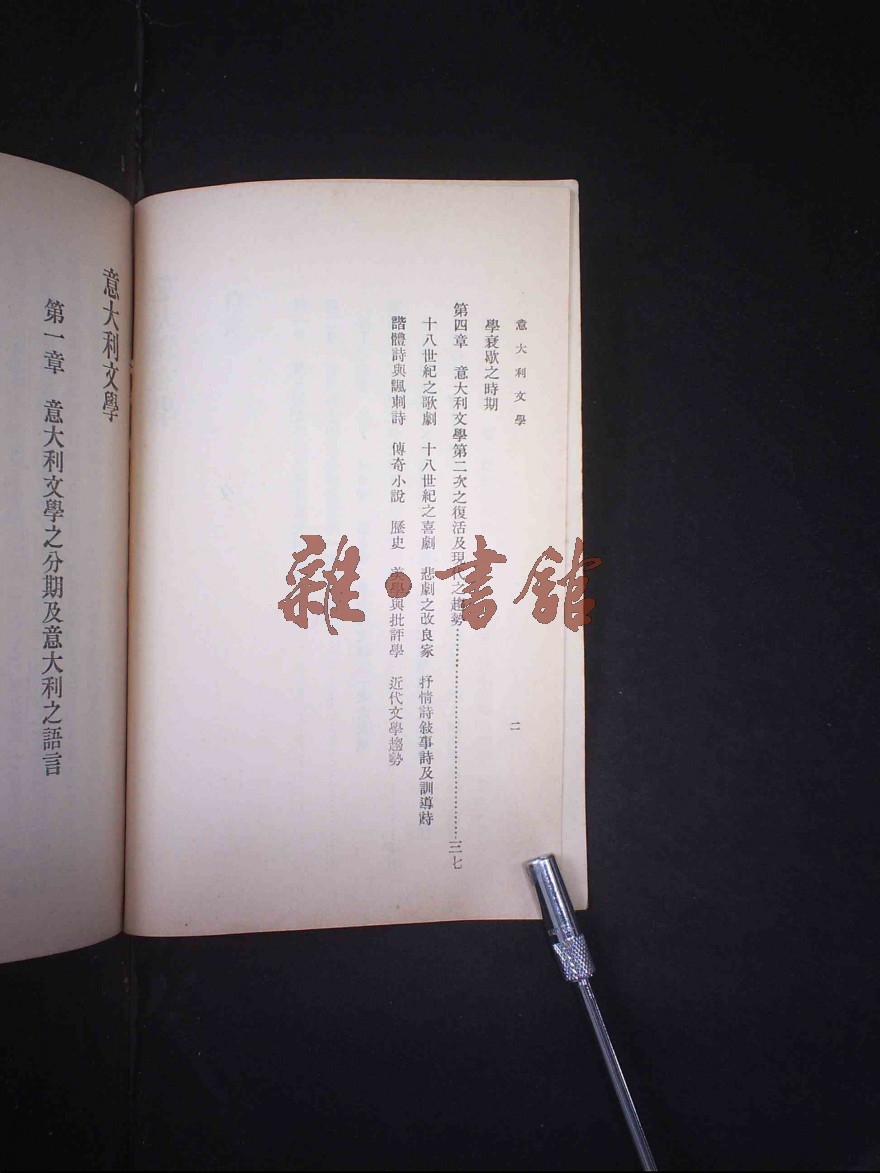 意大利文學
學衰歇之時期
第四章　意大利文學第二次之復活及現代之趨勢……………………三七
十八世紀之歌劇　十八世紀之喜劇　悲劇之改良家　抒情詩敍事詩及訓導詩
諧體詩與諷刺詩　傳奇小說　歷史　美學與批評學　近代文學趨勢
二
意大利文學
第一章　意大利文學之分期及意大利之語言
雜·書館